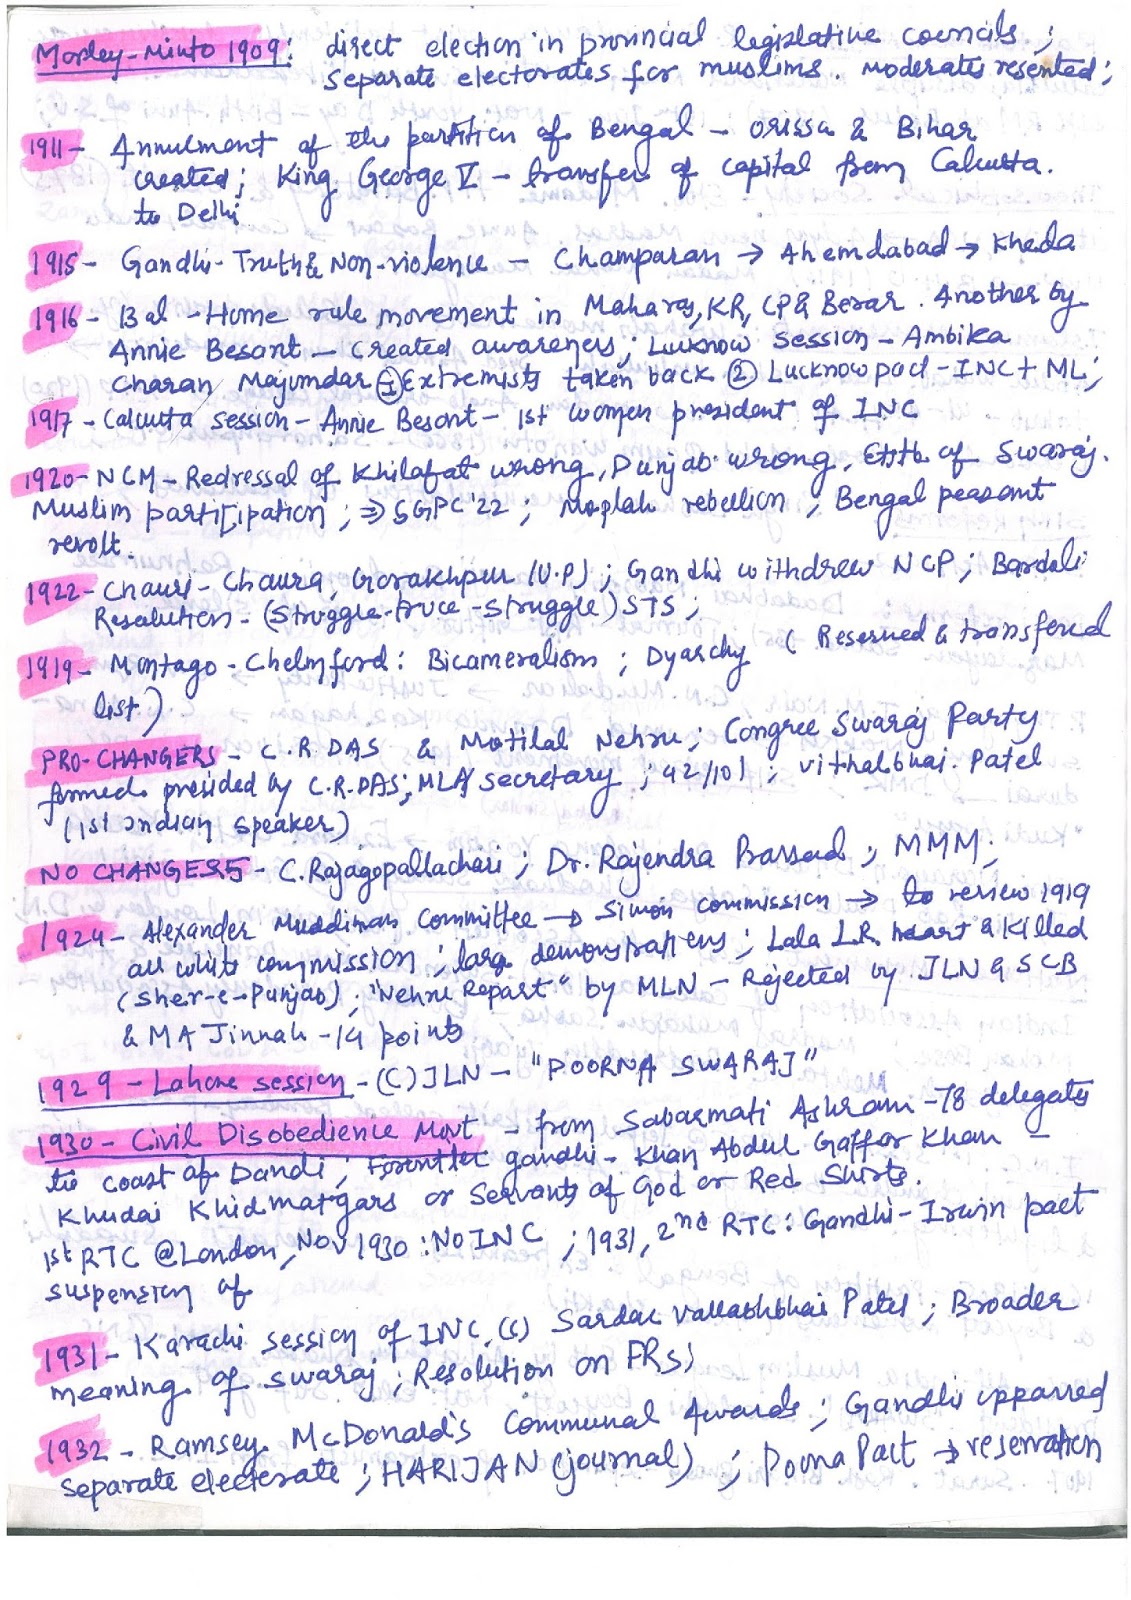 Morley-Minto 1909: direct election in provincial legislative councils;
separate electorates for muslims. Moderates resented;
1911- Annulment of the partition of Bengal - Orissa & Bihar
created; King George V - transfer of capital from Calcutta.
to Delhi
1915- Gandhi- Truth & Non-violence - Champaran → Ahemdabad → Kheda
1916- Bal - Home rule movement in Maharas, KR, CP & Berar. Another by
Annie Besant - Created awareness; Lucknow session - Ambika
Charan Majumdar ① Extremists taken back ② Lucknow pact - INC + ML;
1917- Calcutta session - Annie Besant - 1st women president of INC
1920- NCM - Redressal of Khilafat wrong, Punjab wrong, Estb of Swaraj.
Muslim participation; ⇒ SGPC '22; Moplah rebellion; Bengal peasant
revolt.
1922- Chauri-Chaura, Gorakhpur (U.P); Gandhi withdrew NCP; Bardoli
Resolution - (Struggle-truce-struggle) STS;
1919- Montago-Chelmsford: Bicameralism; Dyarchy (Reserved & transfered
list.)
PRO-CHANGERS - C.R.DAS & Motilal Nehru; Congree Swaraj Party
formed presided by C.R.DAS; MLN secretary; 42/101; Vithalbhai Patel
(1st Indian speaker)
NO CHANGERS - C. Rajagopallachari; Dr. Rajendra Prasad; MMM;
1924- Alexander Muddiman Committee → Simon commission → to review 1919
all white commission; large demonstrations; Lala L.R. heart & killed
(Sher-e-Punjab); "Nehru Report" by MLN - Rejected by JLN & SCB
& MA Jinnah - 14 points
1929 - Lahore session - (C) JLN - "POORNA SWARAJ"
1930 - Civil Disobedience Movt - from Sabarmati Ashram - 78 delegates
to coast of Dandi; Frontier gandhi - Khan Abdul Gaffar Khan -
Khudai Khidmatgars or Servants of God or Red Shirts.
1st RTC @London, Nov 1930: No INC; 1931, 2nd RTC: Gandhi-Irwin pact
suspension of
1931- Karachi session of INC, (S) Sardar Vallabhbhai Patel; Broader
meaning of swaraj; Resolution on FRs;
1932 - Ramsey McDonald's Communal Awards; Gandhi upparred
separate electerate; HARIJAN (journal); Poona Pact → reservation